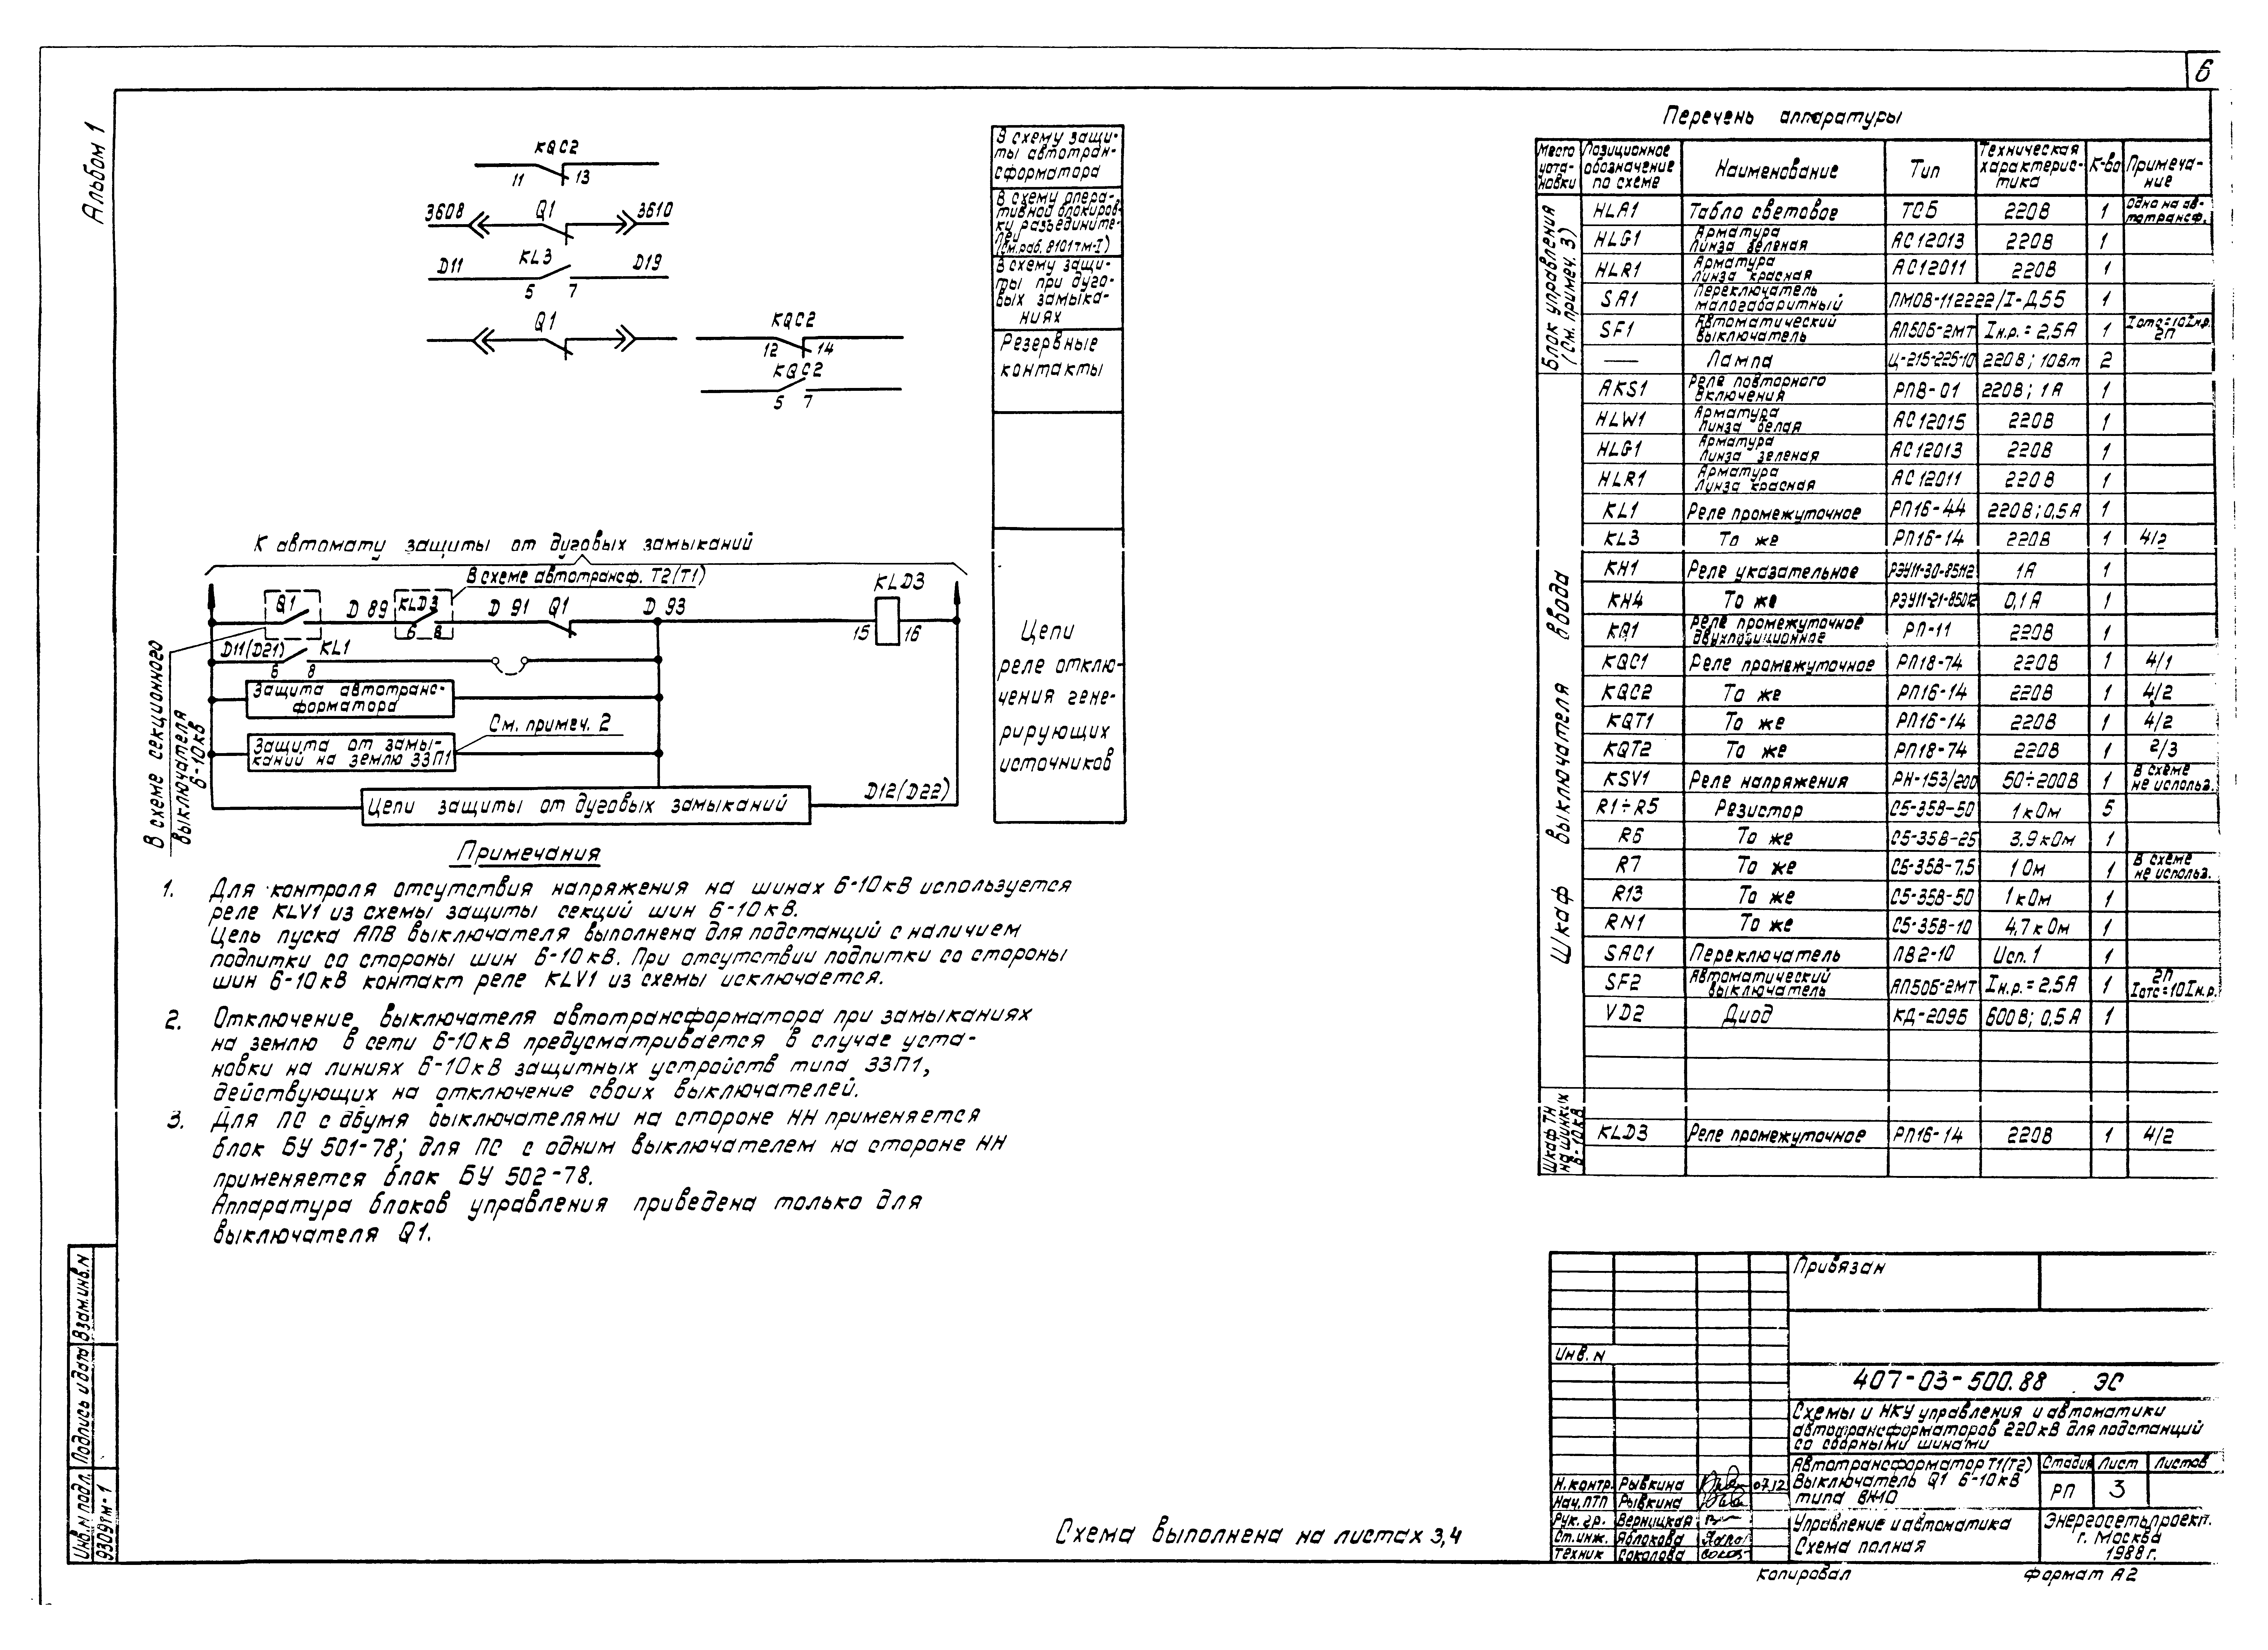 6
Альбом 1
KQC2
11 13
3608 Q1 3610
D11 KL3 D19
5 7
Q1
KQC2
12 14
KQC2
5 7
В схему защи-
ты автотран-
сформатора
В схему опера-
тивной блокиров-
ки разъедините-
лей
(см. раб. 8101тм-I)
В схему защи-
ты при дуго-
вых замыка-
ниях
Резервные
контакты
Цепи
реле отклю-
чения гене-
рирующих
источников
К автомату защиты от дуговых замыканий
В схеме автотрансф. Т2(Т1)
KLD3
Q1 D 89 KLD3 D 91 Q1 D 93
6 8
15 16
D11(D21) KL1
6 8
Защита автотранс-
форматора
См. примеч. 2
Защита от замы-
каний на землю ЗЗП1
D12(D22)
Цепи защиты от дуговых замыканий
В схеме секционного
выключателя
6-10кВ
Примечания
1. Для контроля отсутствия напряжения на шинах 6-10кВ используется
реле KLV1 из схемы защиты секций шин 6-10кВ.
Цепь пуска АПВ выключателя выполнена для подстанций с наличием
подпитки со стороны шин 6-10кВ. При отсутствии подпитки со стороны
шин 6-10кВ контакт реле KLV1 из схемы исключается.
2. Отключение выключателя автотрансформатора при замыканиях
на землю в сети 6-10кВ предусматривается в случае уста-
новки на линиях 6-10кВ защитных устройств типа ЗЗП1,
действующих на отключение своих выключателей.
3. Для ПС с двумя выключателями на стороне НН применяется
блок БУ 501-78; для ПС с одним выключателем на стороне НН
применяется блок БУ 502-78.
Аппаратура блоков управления приведена только для
выключателя Q1.
Перечень аппаратуры
Место уста-новки Позиционное обозначение по схеме Наименование Тип Техническая характерис-тика К-во Примеча-ние
Блок управления (См. примеч. 3)
HLA1 Табло световое ТСБ 220В 1 Одно на ав-тотрансф.
HLG1 Арматура Линза зеленая АС12013 220В 1
HLR1 Арматура Линза красная АС12011 220В 1
SA1 Переключатель малогабаритный ПМОВ-112222/I-Д55 1
SF1 Автоматический выключатель АП50Б-2МТ Iн.р.=2,5А 1 Iотс=10Iн.р. 2П
— Лампа Ц-215-225-10 220В; 10Вт 2
Шкаф выключателя ввода
AKS1 Реле повторного включения РПВ-01 220В; 1А 1
HLW1 Арматура Линза белая АС12015 220В 1
HLG1 Арматура Линза зеленая АС12013 220В 1
HLR1 Арматура Линза красная АС12011 220В 1
KL1 Реле промежуточное РП16-44 220В; 0,5А 1
KL3 То же РП16-14 220В 1 4/2
KH1 Реле указательное РЭУ11-30-85112 1А 1
KH4 То же РЭУ11-21-85012 0,1А 1
KQ1 Реле промежуточное двухпозиционное РП-11 220В 1
KQC1 Реле промежуточное РП18-74 220В 1 4/1
KQC2 То же РП16-14 220В 1 4/2
KQT1 То же РП16-14 220В 1 4/2
KQT2 То же РП18-74 220В 1 2/3
KSV1 Реле напряжения РН-153/200 50÷200В 1 В схеме не использ.
R1÷R5 Резистор С5-35В-50 1кОм 5
R6 То же С5-35В-25 3,9кОм 1
R7 То же С5-35В-7,5 1 Ом 1 В схеме не использ.
R13 То же С5-35В-50 1кОм 1
RN1 То же С5-35В-10 4,7кОм 1
SAC1 Переключатель ПВ2-10 Исп. 1 1
SF2 Автоматический выключатель АП50Б-2МТ Iн.р.=2,5А 1 2П Iотс=10Iн.р.
VD2 Диод КД-209Б 600В; 0,5А 1
Шкаф ТН на шинах 6-10кВ
KLD3 Реле промежуточное РП16-14 220В 1 4/2
Привязан
Инв. N
407-03-500.88 ЭС
Схемы и НКУ управления и автоматики
автотрансформаторов 220кВ для подстанций
со сборными шинами
Автотрансформатор Т1(Т2)
Выключатель Q1 6-10кВ
типа ВК-10
Стадия Лист Листов
РП 3
Управление и автоматика
Схема полная
Энергосетьпроект.
г. Москва
1988г.
Н.контр. Рывкина 07.12
Нач.ПТП Рывкина
Рук. гр. Верницкая
Ст.инж. Яблокова
Техник Соколова
Схема выполнена на листах 3,4
Копировал Формат А2
Взам.инв.N
Подпись и дата
Инв.N подл.
9309тм-1